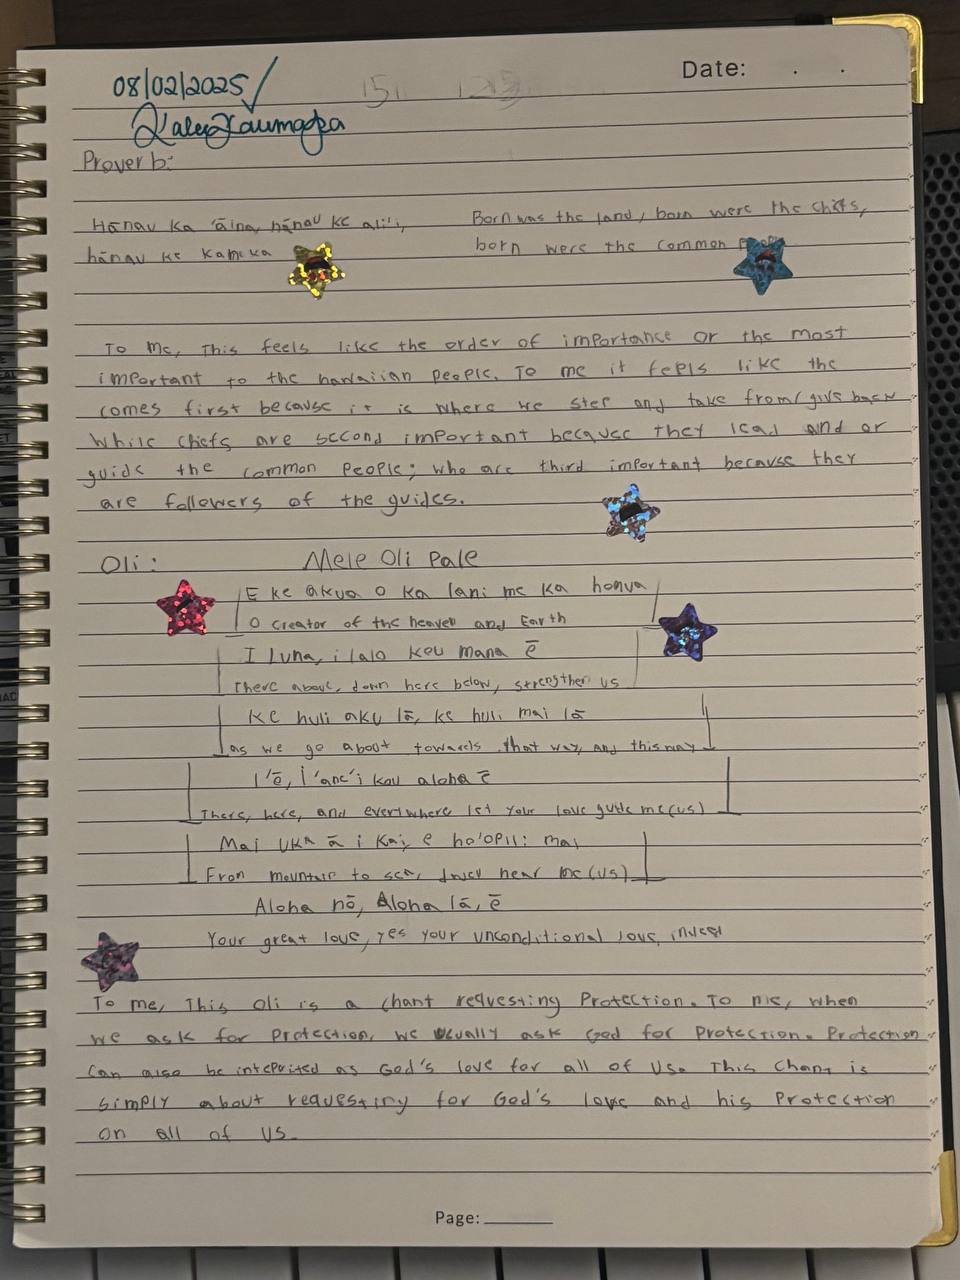 08/02/2025
Date: . .
Proverb:
Hānau Ka 'āina, hānau ke ali'i,
hānau ke Kamaka
Born was the land, born were the chiefs,
born were the common
To me, This feels like the order of importance or the most
important to the hawaiian people. To me it feels like the
comes first because it is where we step and take from/give back
While chiefs are second important because they lead and or
guide the common people; who are third important because they
are followers of the guides.
Oli: Mele Oli Pale
E ke akua o ka lani me ka honua
O creator of the heaven and Earth
I Luna, i lalo kou mana ē
There above, down here below, strengthen us
Ke huli aku lā, ke huli mai lā
as we go about towards that way, and this way
I 'ē, i 'ane'i kou aloha ē
There, here, and everywhere let your love guide me (us)
Mai uka ā i Kai, e ho'opili mai
From mountain to sea, near me (us)
Aloha nō, Aloha lā, ē
Your great love, yes your unconditional love,
To me, This oli is a chant requesting Protection. To me, when
we ask for protection, we usually ask God for protection. Protection
can also be intepruited as God's love for all of us. This chant is
simply about requesting for God's love and his Protection
on all of us.
Page: